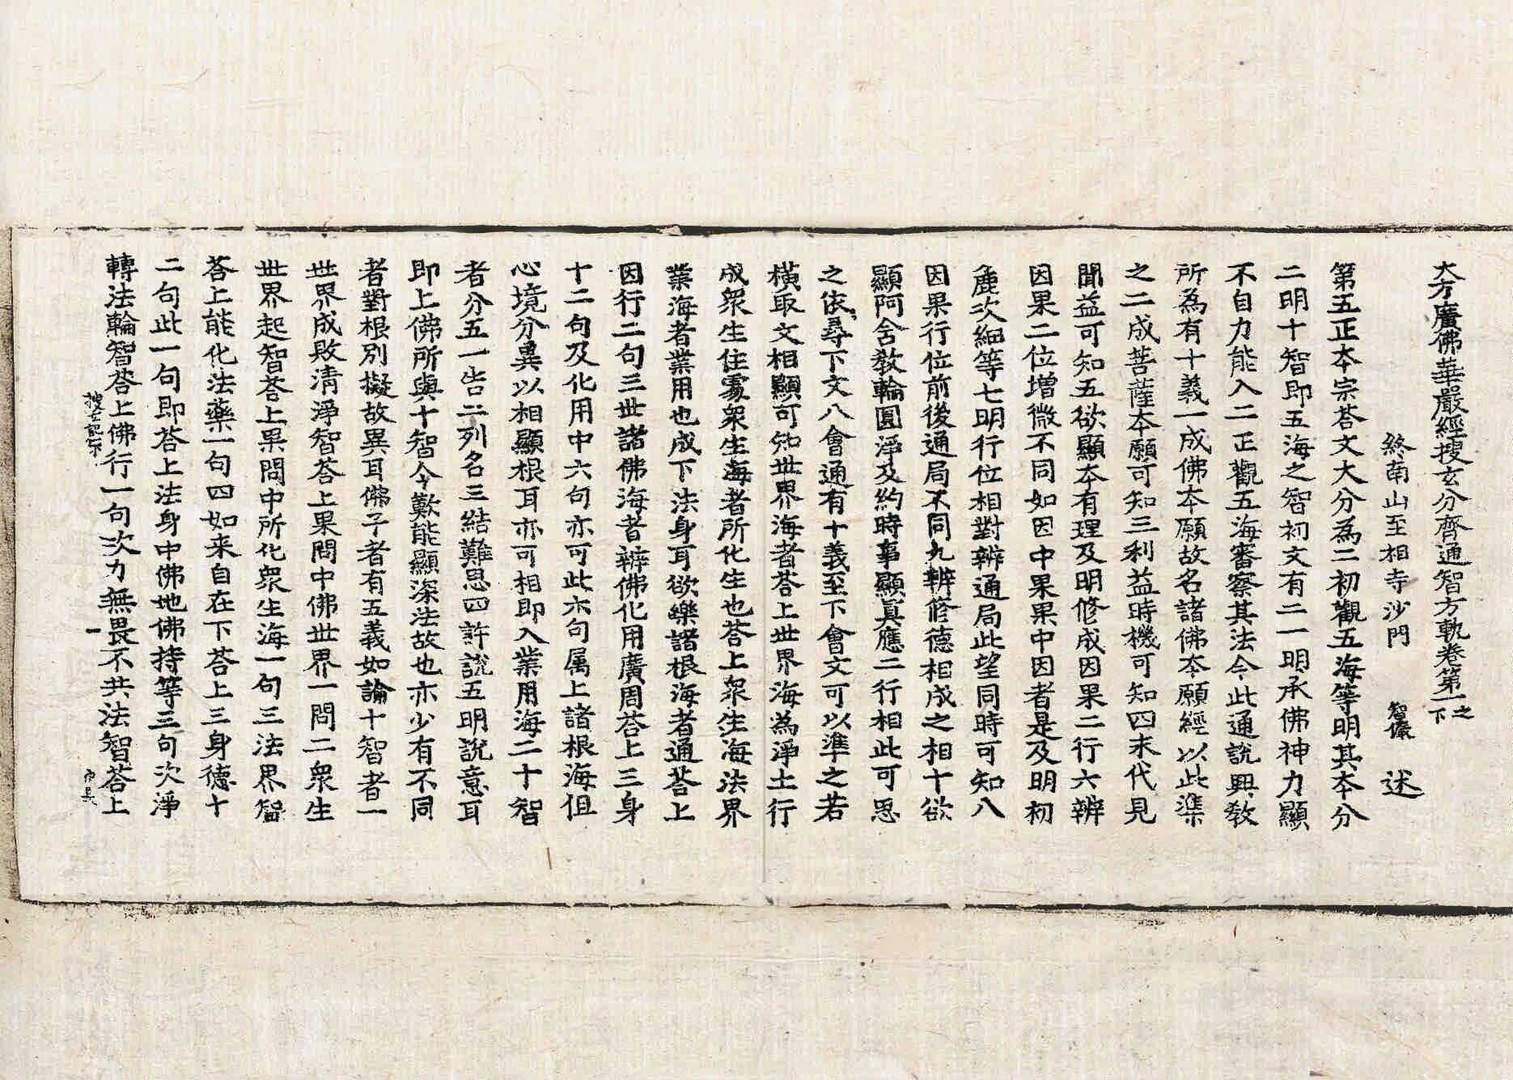 大方廣佛華嚴經搜玄分齊通智方軌卷第一之下
終南山至相寺沙門 智儼 述
第五正本宗荅文大分為二初觀五海等明其本分
二明十智即五海之智初文有二一明承佛神力顯
不自力能入二正觀五海審察其法令此通說興教
所為有十義一成佛本願故名諸佛本願經以此準
之二成菩薩本願可知三利益時機可知四末代見
聞益可知五欲顯本有理及明修成因果二行六辨
因果二位增微不同如因中果果中因者是及明初
麁次細等七明行位相對辨通局此望同時可知八
因果行位前後通局不同九辨修德相成之相十欲
顯阿含教輪圓淨及約時事顯真應二行相此可思
之依尋下文八會通有十義至下會文可以準之若
橫取文相顯可知世界海者荅上世界海為淨土行
成眾生住處眾生海者所化生也荅上眾生海法界
業海者業用也成下法身耳欲樂諸根海者通荅上
因行二句三世諸佛海者辨佛化用廣周荅上三身
十二句及化用中六句亦可此六句属上諸根海但
心境分異以相顯根耳亦可相即入業用海二十智
者分五一告二列名三結難思四許說五明說意耳
即上佛所與十智令歎能顯深法故也亦少有不同
者對根別擬故異耳佛子者有五義如論十智者一
世界成敗清淨智荅上果問中佛世界一問二眾生
世界起智荅上果問中所化眾生海一句三法界智
荅上能化法藥一句四如来自在下荅上三身德十
二句此一句即荅上法身中佛地佛持等三句次淨
轉法輪智荅上佛行一句次力無畏不共法智荅上
搜玄記 一